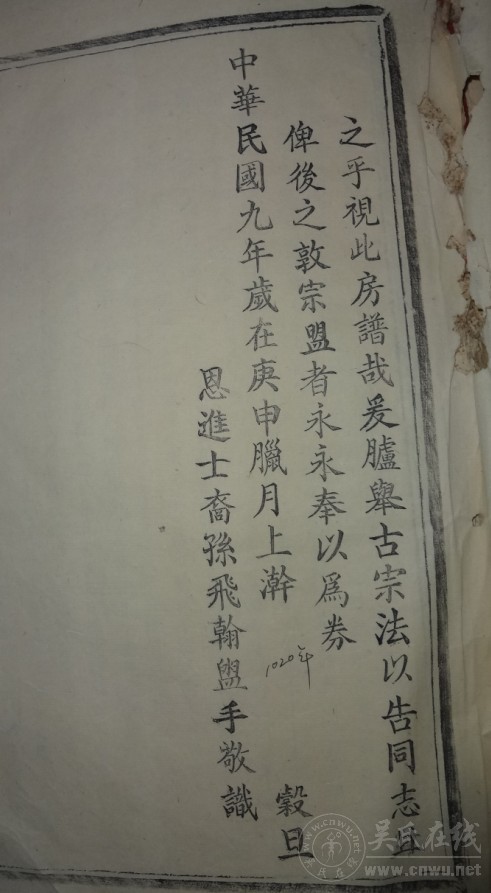 之乎視此房譜哉爰臚舉古宗法以告同志且
俾後之敦宗盟者永永奉以爲券
中華民國九年歲在庚申臘月上澣
穀旦
1020年
恩進士裔孫飛翰盥手敬識
吴氏在线
www.cnwu.net